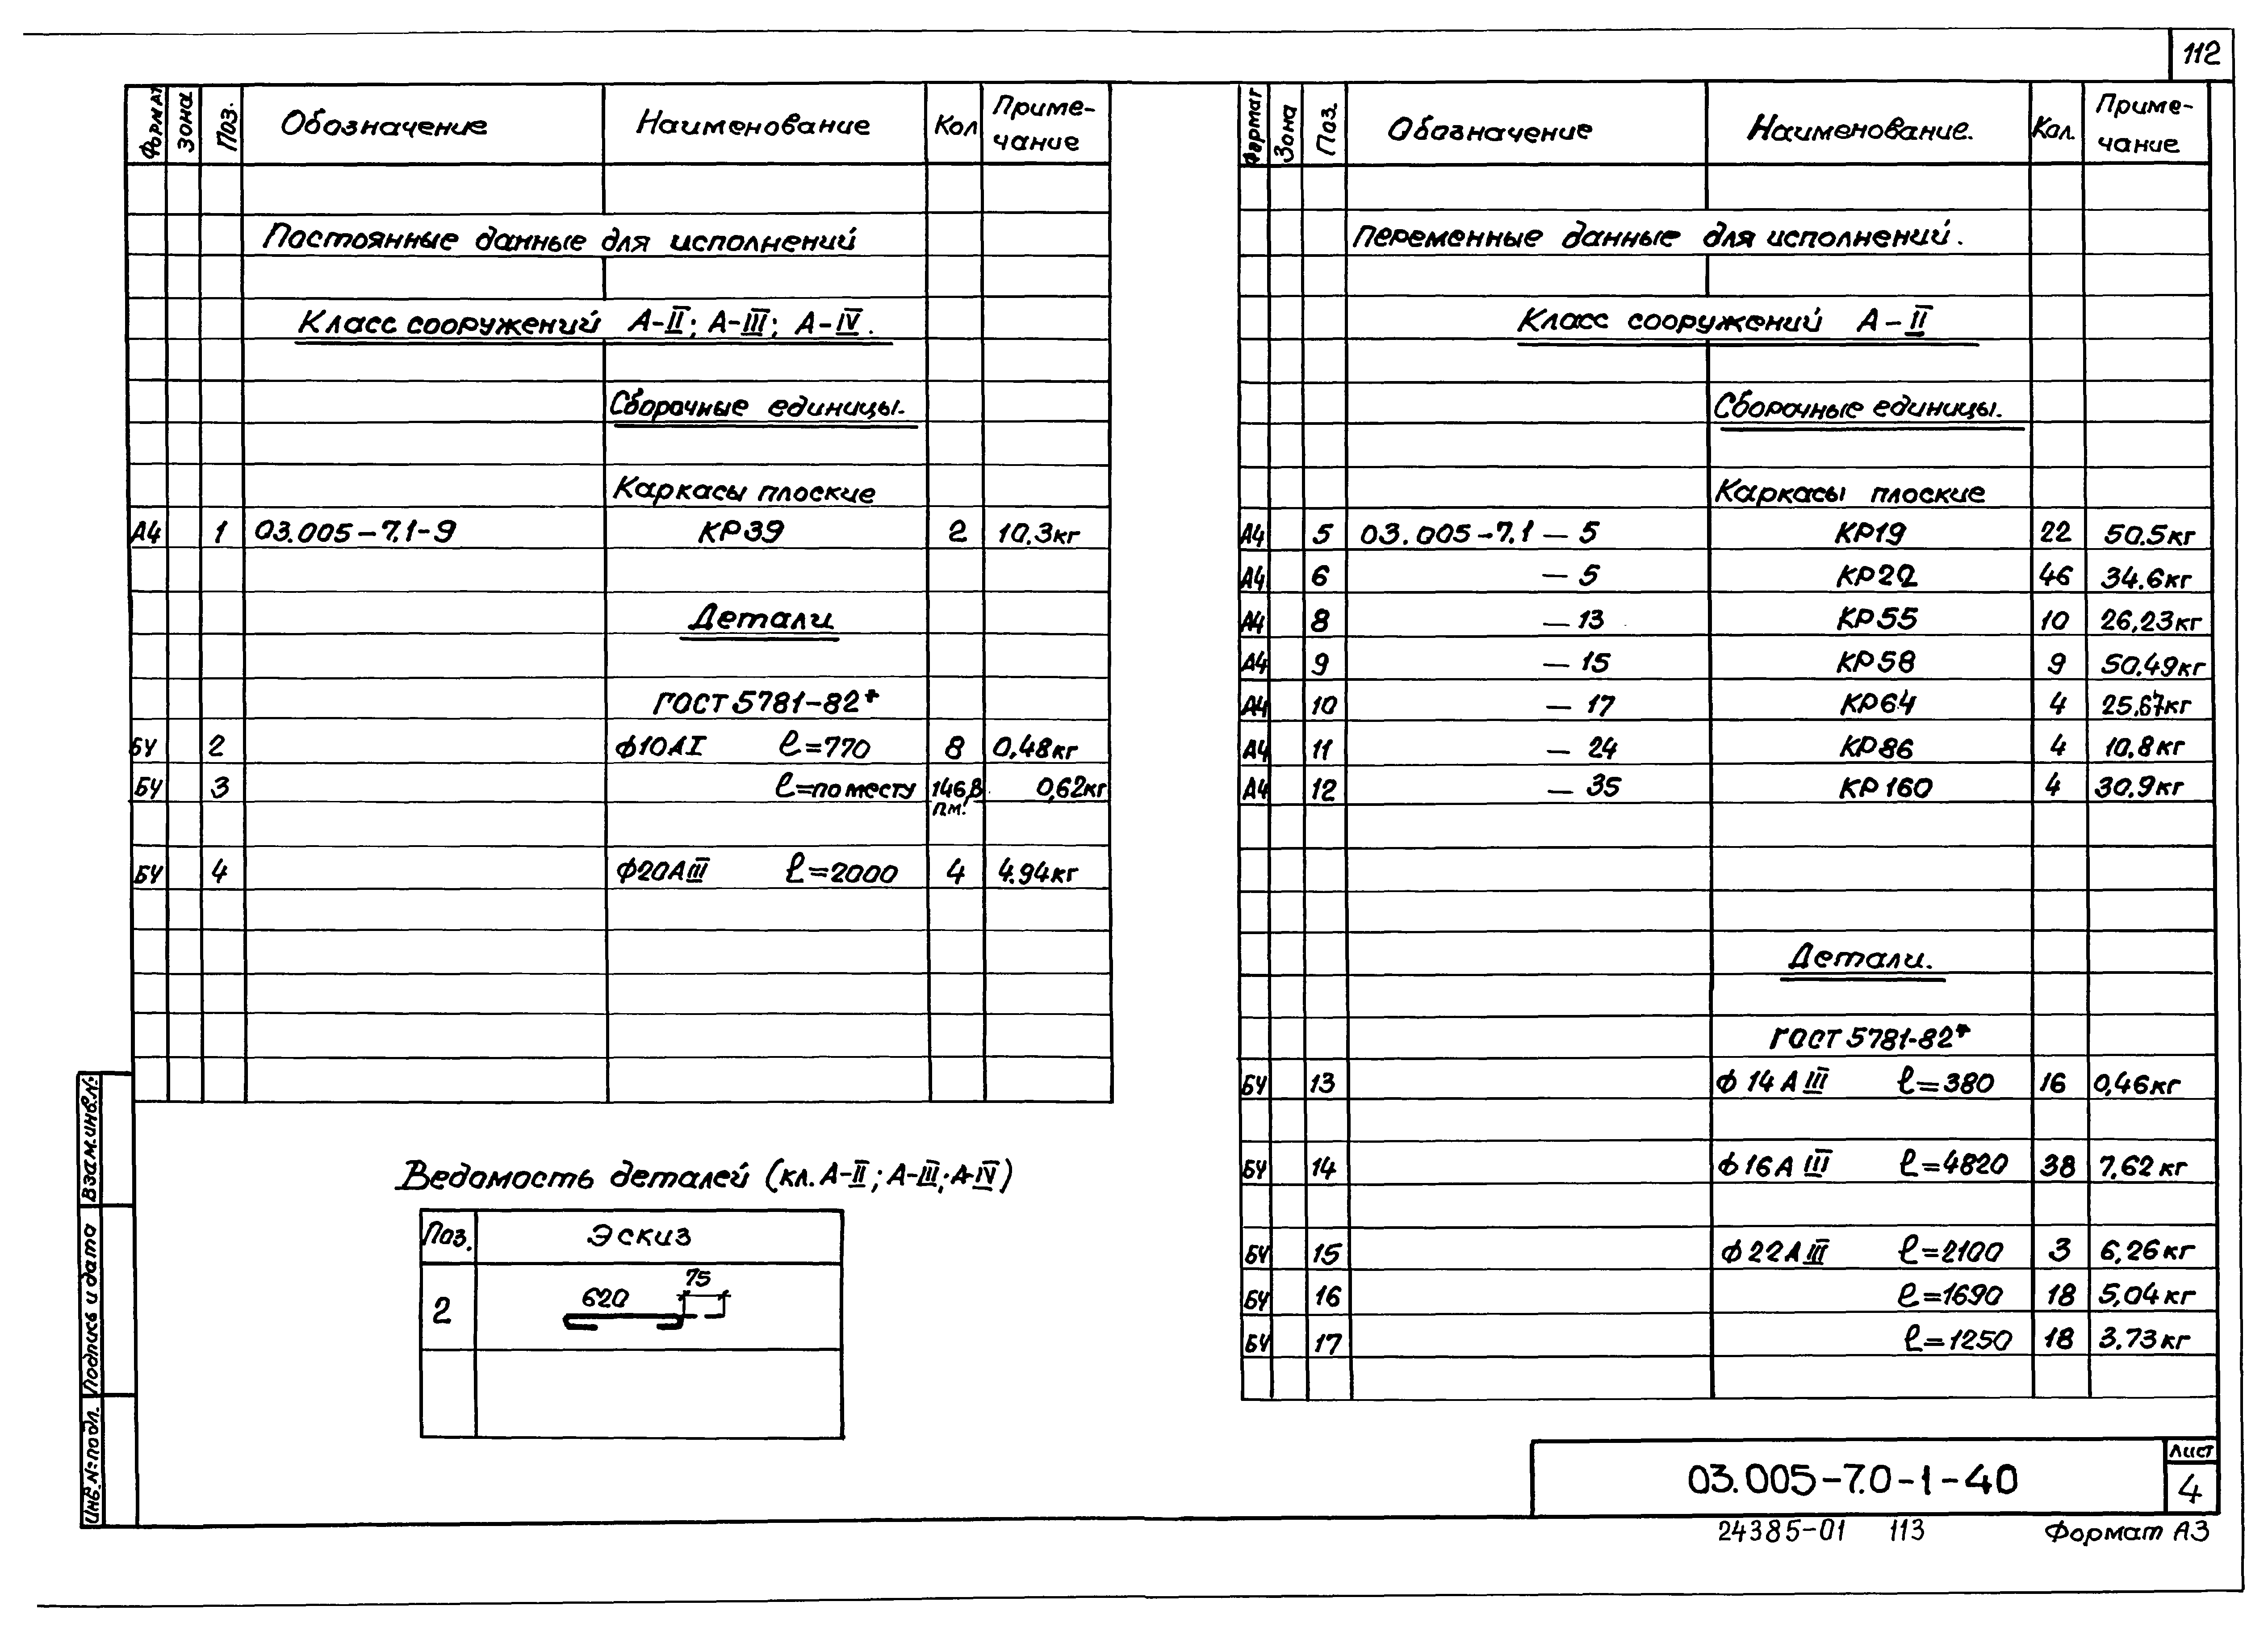 112
Формат Зона Поз. Обозначение Наименование Кол Приме-
чание
Постоянные данные для исполнений
Класс сооружений А-II; А-III; А-IV.
Сборочные единицы.
Каркасы плоские
А4 1 03.005-7.1-9 КР39 2 10.3кг
Детали
ГОСТ 5781-82*
БЧ 2 ф10АI ℓ=770 8 0,48кг
БЧ 3 ℓ=по месту 146,8 0,62кг
п.м.
БЧ 4 ф20АIII ℓ=2000 4 4.94кг
Ведомость деталей (кл. А-II; А-III; А-IV)
Поз. Эскиз
75
2 620
Формат Зона Поз. Обозначение Наименование. Кол. Приме-
чание
Переменные данные для исполнений.
Класс сооружений А-II
Сборочные единицы.
Каркасы плоские
А4 5 03.005-7.1 — 5 КР19 22 50.5кг
А4 6 — 5 КР22 46 34.6кг
А4 8 — 13 КР55 10 26,23кг
А4 9 — 15 КР58 9 50.49кг
А4 10 — 17 КР64 4 25.67кг
А4 11 — 24 КР86 4 10,8кг
А4 12 — 35 КР160 4 30.9кг
Детали.
ГОСТ 5781-82*
БЧ 13 ф14АIII ℓ=380 16 0,46кг
БЧ 14 ф16АIII ℓ=4820 38 7,62кг
БЧ 15 ф22АIII ℓ=2100 3 6,26кг
БЧ 16 ℓ=1690 18 5,04кг
БЧ 17 ℓ=1250 18 3.73кг
Взам.инв.№
Подпись и дата
Инв.№подл.
03.005-7.0-1-40
Лист
4
24385-01 113 Формат А3